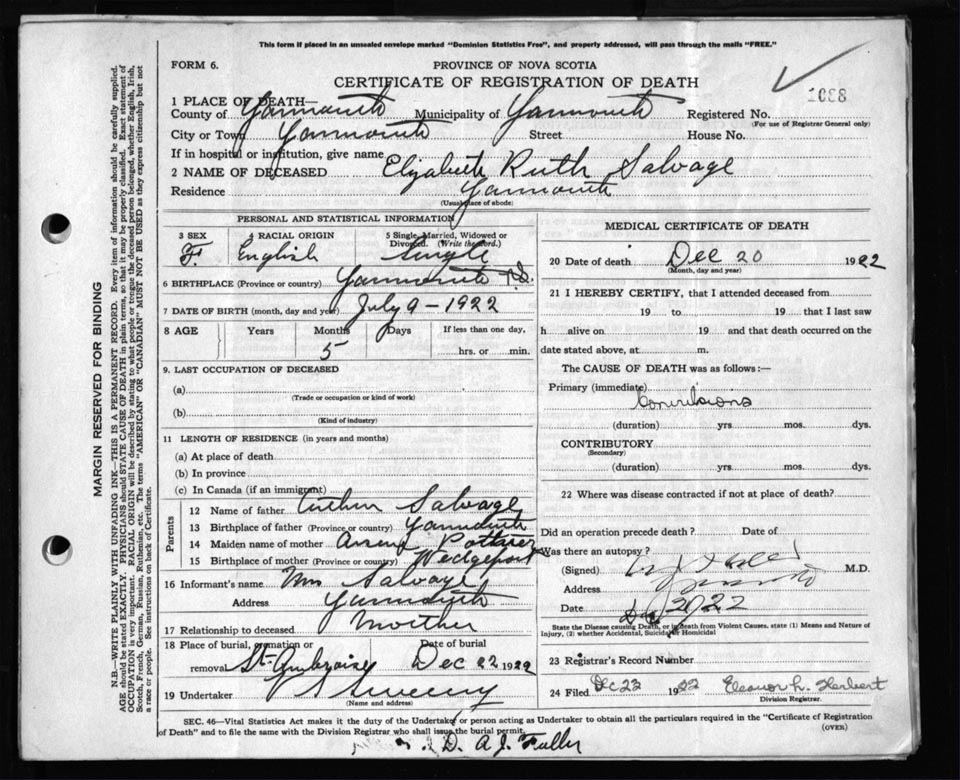 This form if placed in an unsealed envelope marked "Dominion Statistics Free", and properly addressed, will pass through the mails "FREE."
FORM 6.
PROVINCE OF NOVA SCOTIA
CERTIFICATE OF REGISTRATION OF DEATH
1 PLACE OF DEATH—
County of Yarmouth Municipality of Yarmouth Registered No. 1088
(For use of Registrar General only)
City or Town Yarmouth Street House No.
If in hospital or institution, give name
2 NAME OF DECEASED Elizabeth Ruth Salvage
Residence Yarmouth
(Usual place of abode)
PERSONAL AND STATISTICAL INFORMATION
3 SEX F.
4 RACIAL ORIGIN English
5 Single, Married, Widowed or Divorced. (Write the word.) Single
6 BIRTHPLACE (Province or country) Yarmouth N.S.
7 DATE OF BIRTH (month, day and year) July 9 - 1922
8 AGE Years Months Days If less than one day,
5 hrs. or min.
9. LAST OCCUPATION OF DECEASED
(a)
(Trade or occupation or kind of work)
(b)
(Kind of industry)
11 LENGTH OF RESIDENCE (in years and months)
(a) At place of death
(b) In province
(c) In Canada (if an immigrant)
Parents
12 Name of father Arthur Salvage
13 Birthplace of father (Province or country) Yarmouth
14 Maiden name of mother Pothier
15 Birthplace of mother (Province or country) Wedgeport
16 Informant's name Mrs Salvage
Address Yarmouth
17 Relationship to deceased Mother
18 Place of burial, cremation or removal St. Ambroise
Date of burial Dec 22 1922
19 Undertaker Sweeny
(Name and address)
MEDICAL CERTIFICATE OF DEATH
20 Date of death Dec 20 1922
(Month, day and year)
21 I HEREBY CERTIFY, that I attended deceased from
19 to 19 that I last saw
h alive on 19 and that death occurred on the
date stated above, at m.
The CAUSE OF DEATH was as follows:—
Primary (immediate)
Convulsions
(duration) yrs. mos. dys.
CONTRIBUTORY
(Secondary)
(duration) yrs. mos. dys.
22 Where was disease contracted if not at place of death?
Did an operation precede death? Date of
Was there an autopsy?
(Signed) M.D.
Address Yarmouth
Date Dec 20/22
State the Disease causing Death, or in death from Violent Causes, state (1) Means and Nature of
Injury, (2) whether Accidental, Suicidal or Homicidal
23 Registrar's Record Number
24 Filed Dec 22 1922 Eleanor L. Herbert
Division Registrar.
SEC. 46—Vital Statistics Act makes it the duty of the Undertaker or person acting as Undertaker to obtain all the particulars required in the "Certificate of Registration
of Death" and to file the same with the Division Registrar who shall issue the burial permit.
(OVER)
D. A. J. Fuller
MARGIN RESERVED FOR BINDING
N.B.—WRITE PLAINLY WITH UNFADING INK—THIS IS A PERMANENT RECORD. Every item of information should be carefully supplied.
AGE should be stated EXACTLY. PHYSICIANS should STATE CAUSE OF DEATH in plain terms, so that it may be properly classified. Exact statement of
OCCUPATION is very important. RACIAL ORIGIN will be described by stating to what people or tongue the deceased person belonged, whether English, Irish,
Scotch, French, German, Russian, Ruthenian, etc. The terms "AMERICAN" OR "CANADIAN" MUST NOT BE USED as they express citizenship but not
a race or people. See instructions on back of Certificate.